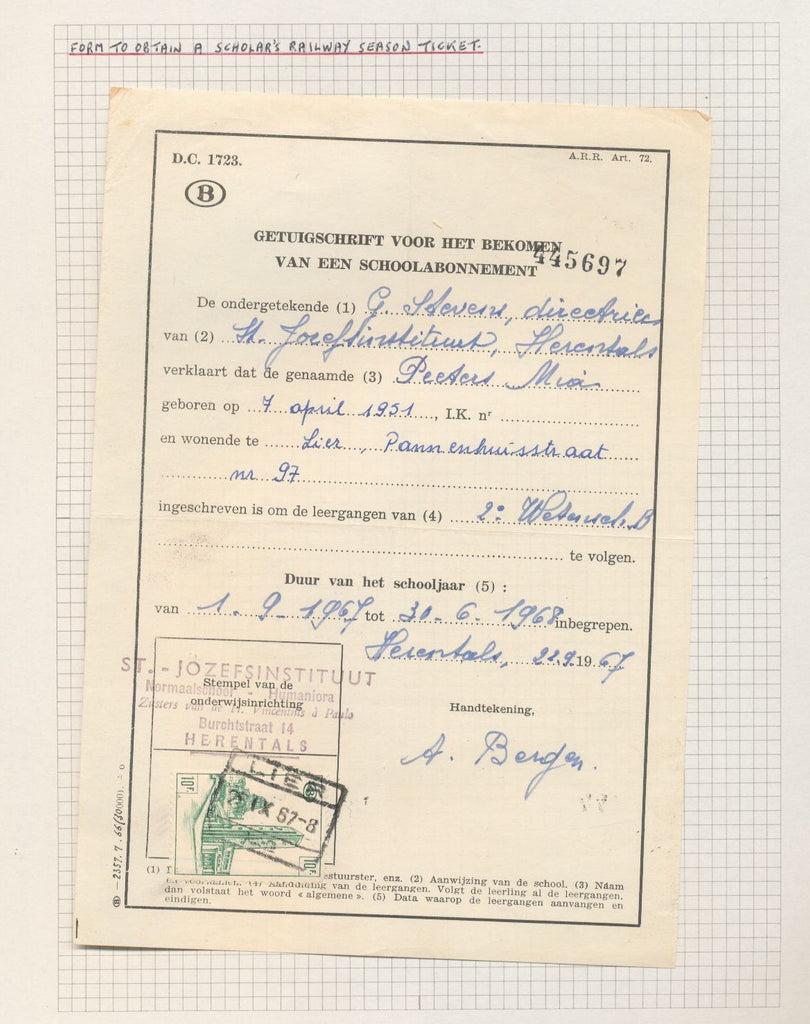 FORM TO OBTAIN A SCHOLAR'S RAILWAY SEASON TICKET.
D.C. 1723.
A.R.R. Art. 72.
B
GETUIGSCHRIFT VOOR HET BEKOMEN
VAN EEN SCHOOLABONNEMENT
445697
De ondergetekende (1) G. Stevens, directrice
van (2) St. Jozefsinstituut, Herentals
verklaart dat de genaamde (3) Peeters Mia
geboren op 7 april 1951, I.K. nr
en wonende te Lier, Pannenhuisstraat
nr 97
ingeschreven is om de leergangen van (4) 2e Wetensch. B
te volgen.
Duur van het schooljaar (5) :
van 1-9-1967 tot 30-6-1968 inbegrepen.
Herentals, 22.9.1967
ST.-JOZEFSINSTITUUT
Normaalschool - Humaniora
Zusters van de H. Vincentius à Paulo
Burchtstraat 14
HERENTALS
Stempel van de
onderwijsinrichting
Handtekening,
A. Bergen.
LIER
IX 67-8
10F.
10F.
(1) estuurster, enz. (2) Aanwijzing van de school. (3) Naam
en voornamen. (4) Aanduiding van de leergangen. Volgt de leerling al de leergangen,
dan volstaat het woord « algemene ». (5) Data waarop de leergangen aanvangen en
eindigen.
B — 2357.7.66 (30000).